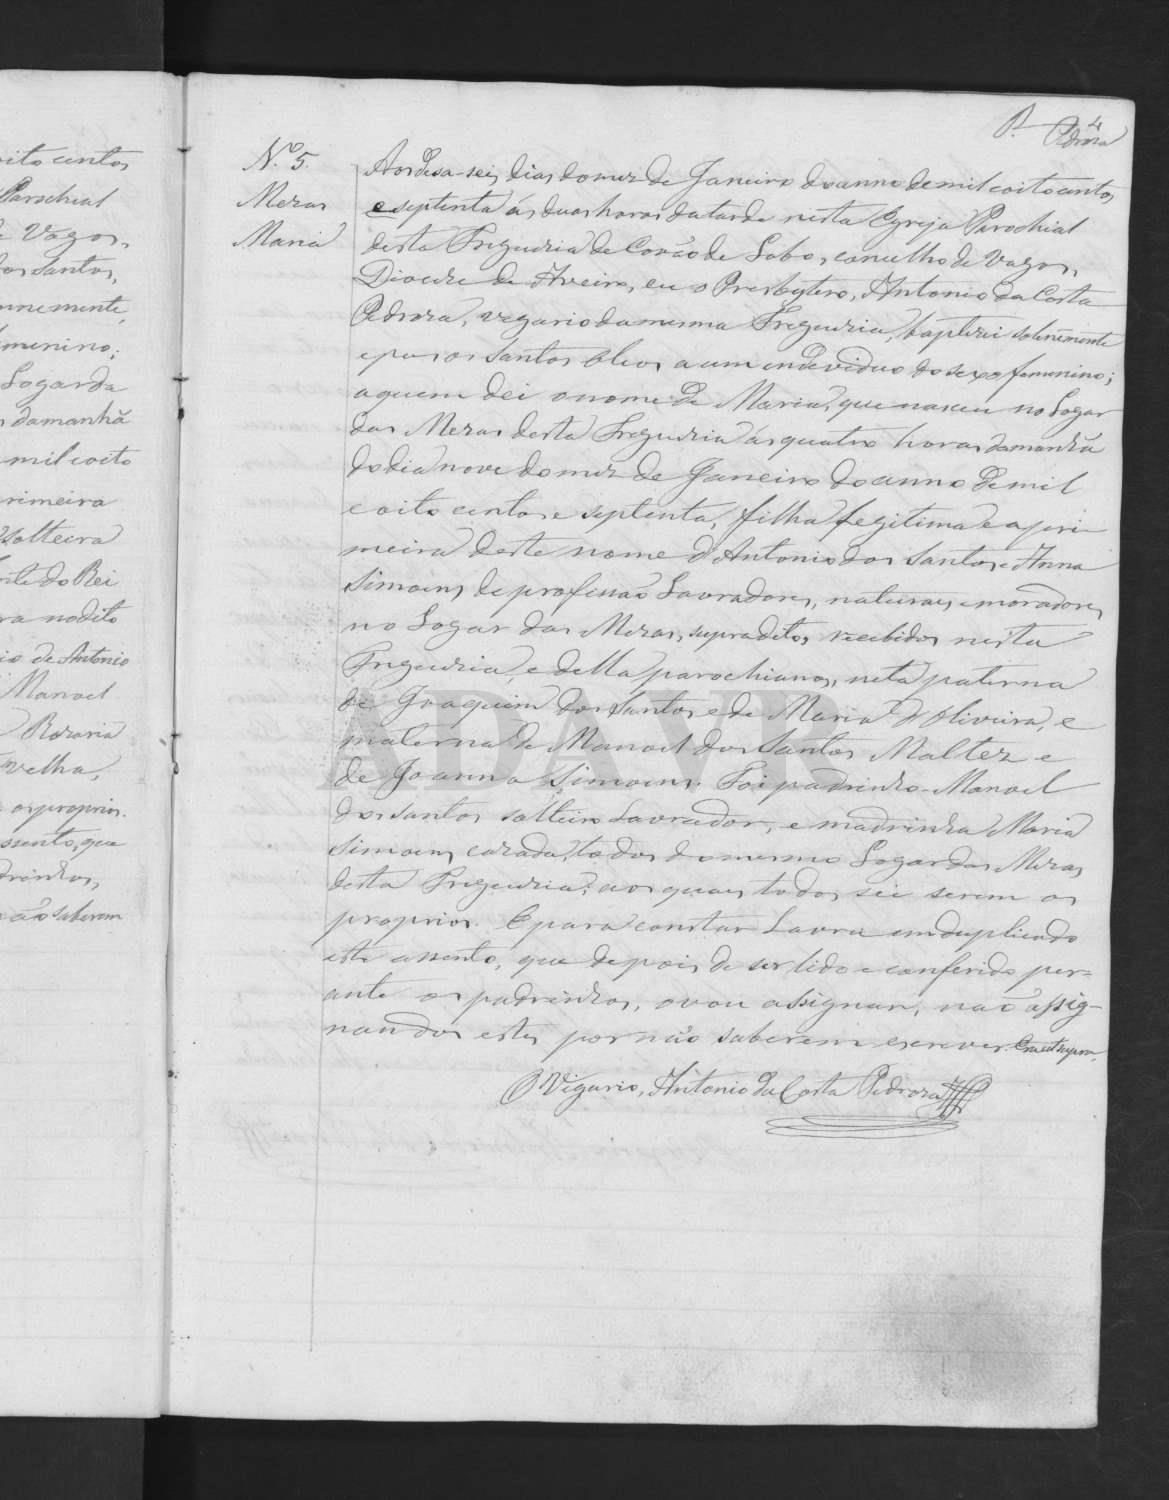 4
P. Pedroza
N.º 5.
Mezas
Maria
Aos desa-seis dias do mez de Janeiro do anno de mil e oito centos
e septenta ás duas horas da tarde nesta Egreja Parochial
desta Freguezia de Covão do Lobo, concelho de Vagos,
Diocese de Aveiro, eu o Presbytero, Antonio da Costa
Pedroza, vigario da mesma Freguezia, baptizei solenemente
e puz os Santos Oleos a um endeviduo do sexo femenino;
a quem dei o nome de Maria, que nasceu no Logar
das Mezas desta Freguezia ás quatro horas da manhã
do dia nove do mez de Janeiro do anno de mil
e oito centos e septenta, filha legitima e a pri-
meira deste nome d'Antonio dos Santos e Anna
Simoens de profissão Lavradores, naturaes e moradores
no Logar das Mezas, supradito, recebidos nesta
Freguezia, e della parochianos, neta paterna
de Joaquim dos Santos e de Maria d'Oliveira, e
materna de Manoel dos Santos Maltez e
de Joanna Simoens. Foi padrinho Manoel
dos Santos solteiro Lavrador, e madrinha Maria
Simoens cazada, todos do mesmo Logar das Mezas
desta Freguezia, aos quaes todos sei serem os
proprios. E para constar Lavrei em duplicado
este assento, que depois de ser lido e conferido per-
ante os padrinhos, o vou assignar, não assig-
nando estes por não saberem escrever. Era ut supra.
O Vigario, Antonio da Costa Pedroza
ADAVR
oito centos
Parochial
de Vagos,
dos Santos,
menino;
Logar da
da manhã
mil e oito
primeira
solteira
do Rei
no dito
de Antonio
Manoel
Rozaria
velha,
os proprios.
assento, que
padrinhos,
não saberem